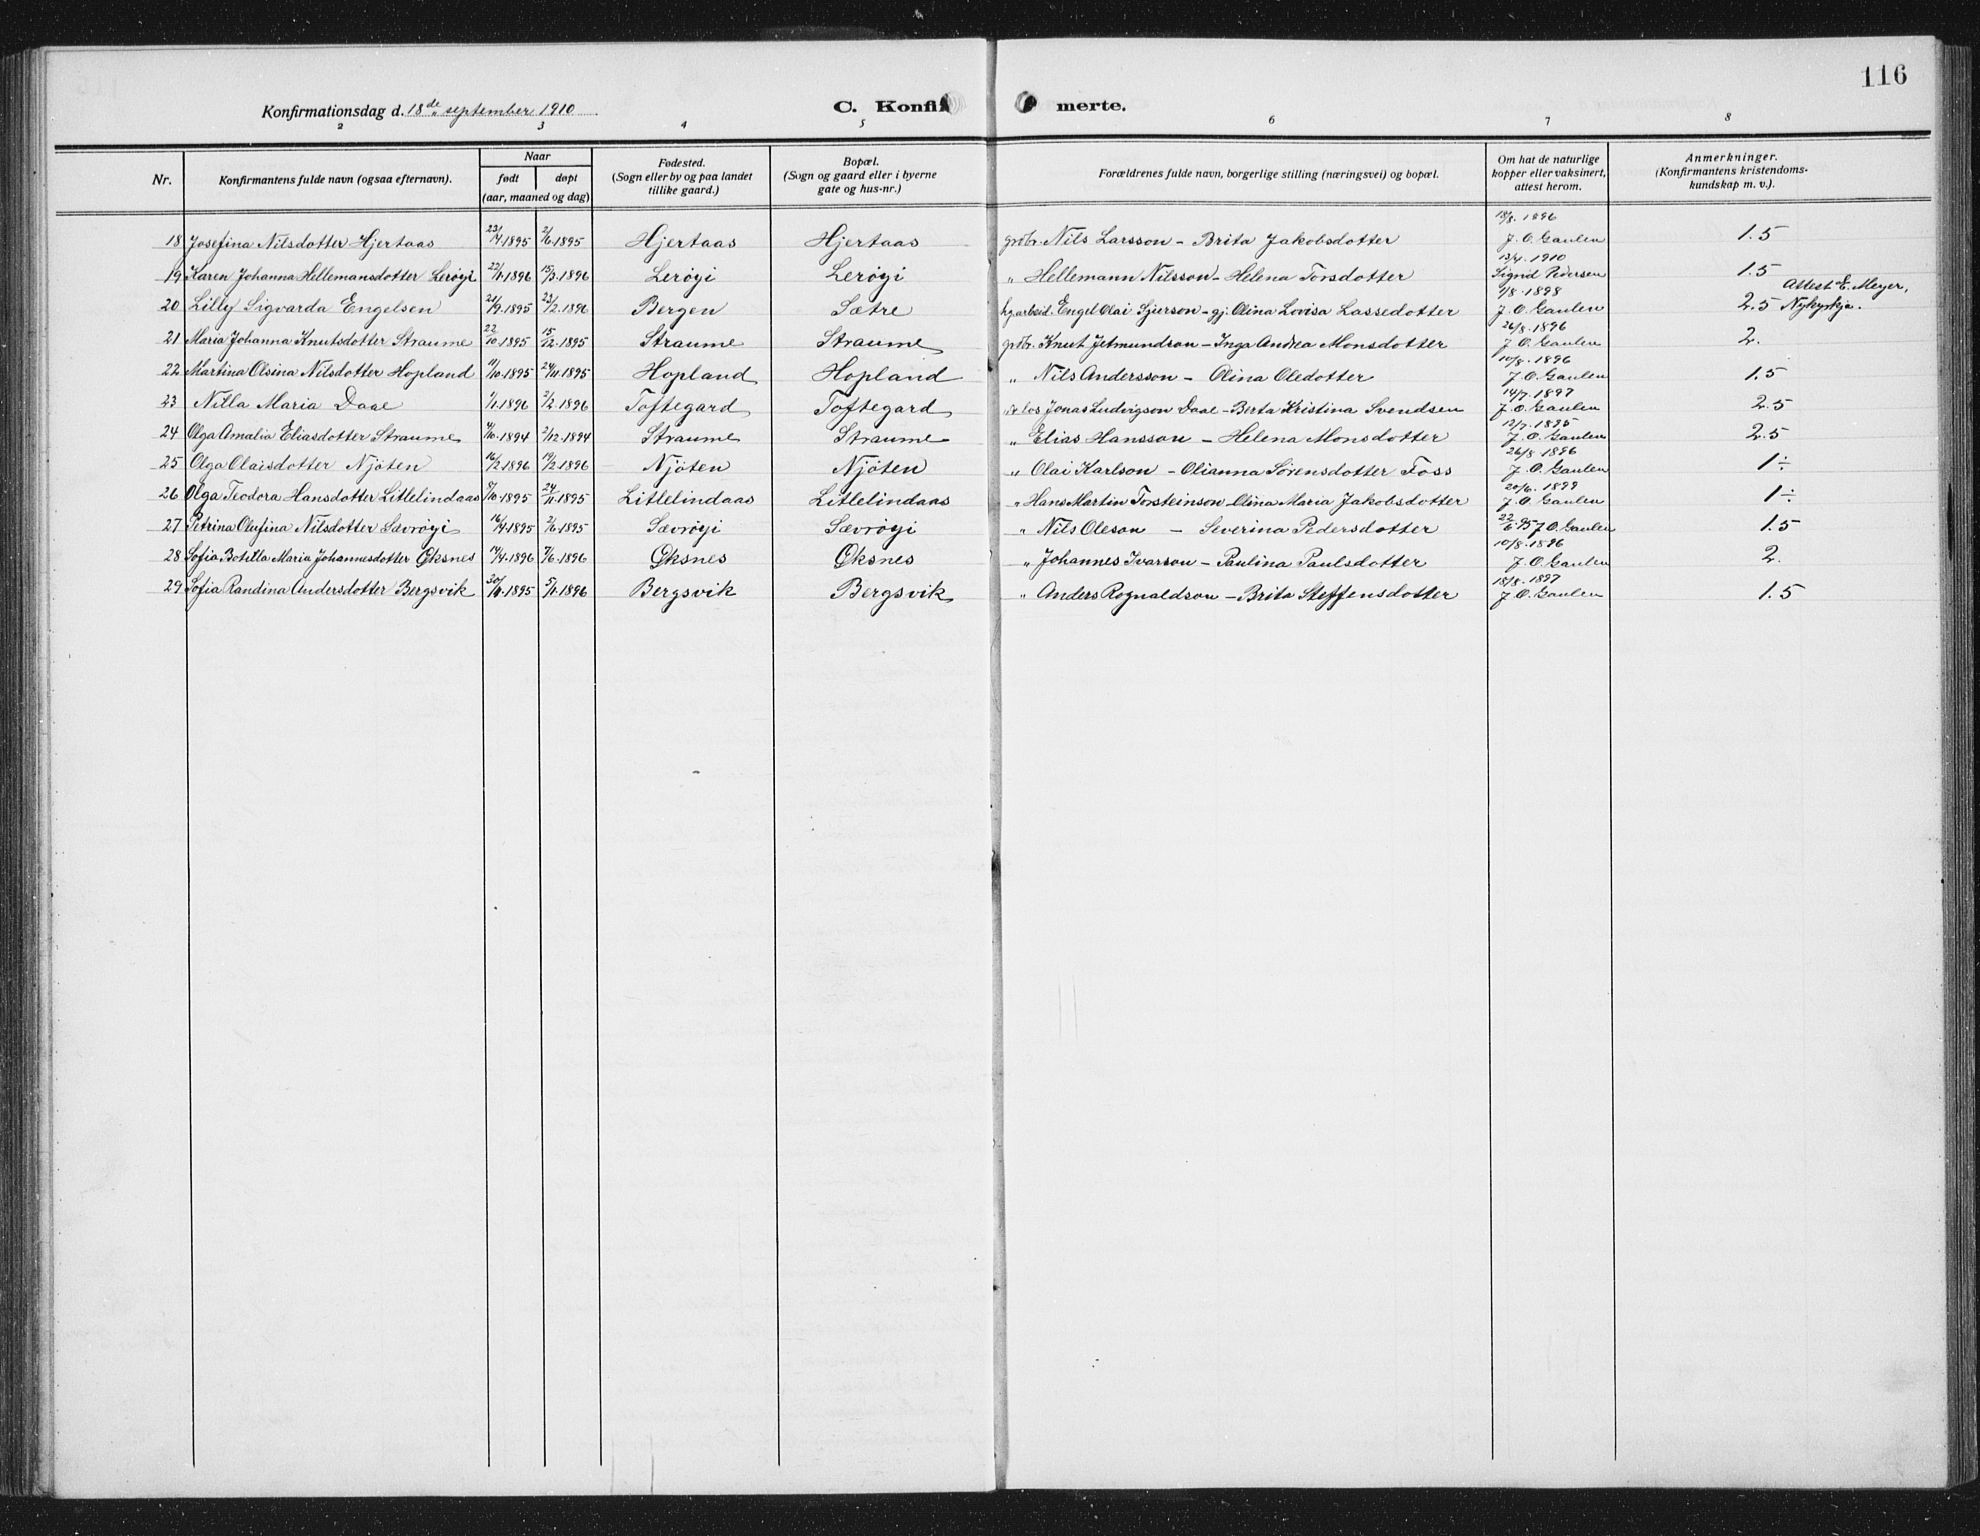 116
Konfirmationsdag d. 18de september 1910
C. Konfir merte.
2 3 4 5 6 7 8
Nr. Konfirmantens fulde navn (ogsaa efternavn). Naar født døpt (aar, maaned og dag) Fødested. (Sogn eller by og paa landet tillike gaard.) Bopæl. (Sogn og gaard eller i byerne gate og hus-nr.) Forældrenes fulde navn, borgerlige stilling (næringsvei) og bopæl. Om hat de naturlige kopper eller vaksinert, attest herom. Anmerkninger. (Konfirmantens kristendoms-kundskap m. v.).
18 Josefina Nilsdotter Hjertaas 23/4.1895 2/6.1895 Hjertaas Hjertaas grdbr. Nils Larsson - Brita Jakobsdotter 18/8.1896 J. O. Gaulen 1.5
19 Karen Johanna Hellemansdotter Lerøyi 22/1.1896 15/3.1896 Lerøyi Lerøyi „ Hellemann Nilsson - Helena Torsdotter 13/4.1910 Sigrid Pedersen 1.5
20 Lilly Sigvarda Engelsen 21/9.1895 23/2.1896 Bergen Sætre Engel Olai Sjurson - gj. Olina Lovisa Lassedotter 1/8.1898 J. O. Gaulen 2.5 Attest E. Meyer, Nykyrkja.
21 Maria Johanna Knutsdotter Straume 22/10.1895 15/12.1895 Straume Straume grdbr. Knut Jetmundson - Inga Andrea Monsdotter 26/8.1896 J. O. Gaulen 2.
22 Martina Olsina Nilsdotter Hopland 11/10.1895 24/11.1895 Hopland Hopland „ Nils Andersson - Olina Oledotter 10/8.1896 J. O. Gaulen 1.5
23 Nilla Maria Daae 1/1.1896 2/2.1896 Toftegard Toftegard los Jonas Ludvigson Daae - Berta Kristina Svendsen 14/7.1897 J. O. Gaulen 2.5
24 Olga Amalia Eliasdotter Straume 4/10.1894 2/12.1894 Straume Straume „ Elias Hansson - Helena Monsdotter 12/7.1895 J. O. Gaulen 2.5
25 Olga Olaisdotter Njøten 16/2.1896 19/2.1896 Njøten Njøten „ Olai Karlson - Olianna Sørensdotter Foss 26/8.1896 J. O. Gaulen 1÷
26 Olga Teodora Hansdotter Litlelindaas 8/10.1895 24/11.1895 Litlelindaas Litlelindaas „ Hans Martin Torsteinson - Olina Maria Jakobsdotter 20/6.1899 J. O. Gaulen 1÷
27 Petrina Olufina Nilsdotter Sævrøyi 16/4.1895 2/6.1895 Sævrøyi Sævrøyi „ Nils Oleson - Severina Pedersdotter 22/6.95 J. O. Gaulen 1.5
28 Sofia Botilla Maria Johannesdotter Øksnes 17/4.1896 7/6.1896 Øksnes Øksnes „ Johannes Ivarson - Paulina Paulsdotter 10/8.1896 J. O. Gaulen 2.
29 Sofia Randina Andersdotter Bergsvik 30/11.1895 5/1.1896 Bergsvik Bergsvik „ Anders Rognaldson - Brita Steffensdotter 18/8.1897 J. O. Gaulen 1.5